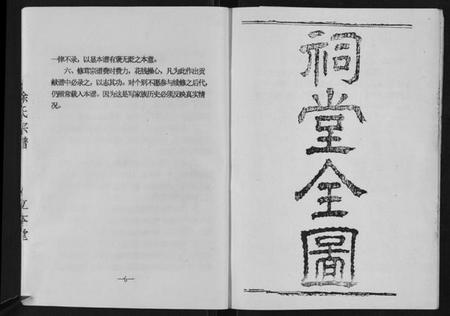 一律不录，以显本谱有褒无贬之本意。
六、修葺宗谱费时费力，花钱操心，凡为此作出贡
献谱中必录之，以志其功，对个别不愿参与续修之后代，
仍照常载入本谱，因为这是写家族历史必须反映真实情
况。
6
徐氏宗譜
立本堂
祠堂全圖